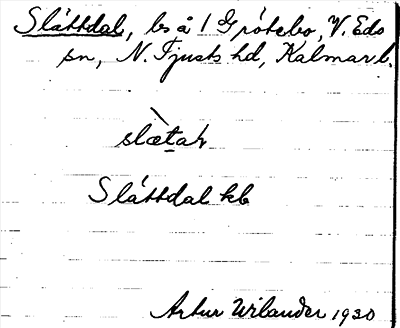 Slättdal, bs å 1 Grötebo, V. Edo
sn, N. Tjusts hd, Kalmar l.
slætaɩ
Slättdal kb
Artur Wilander 1930